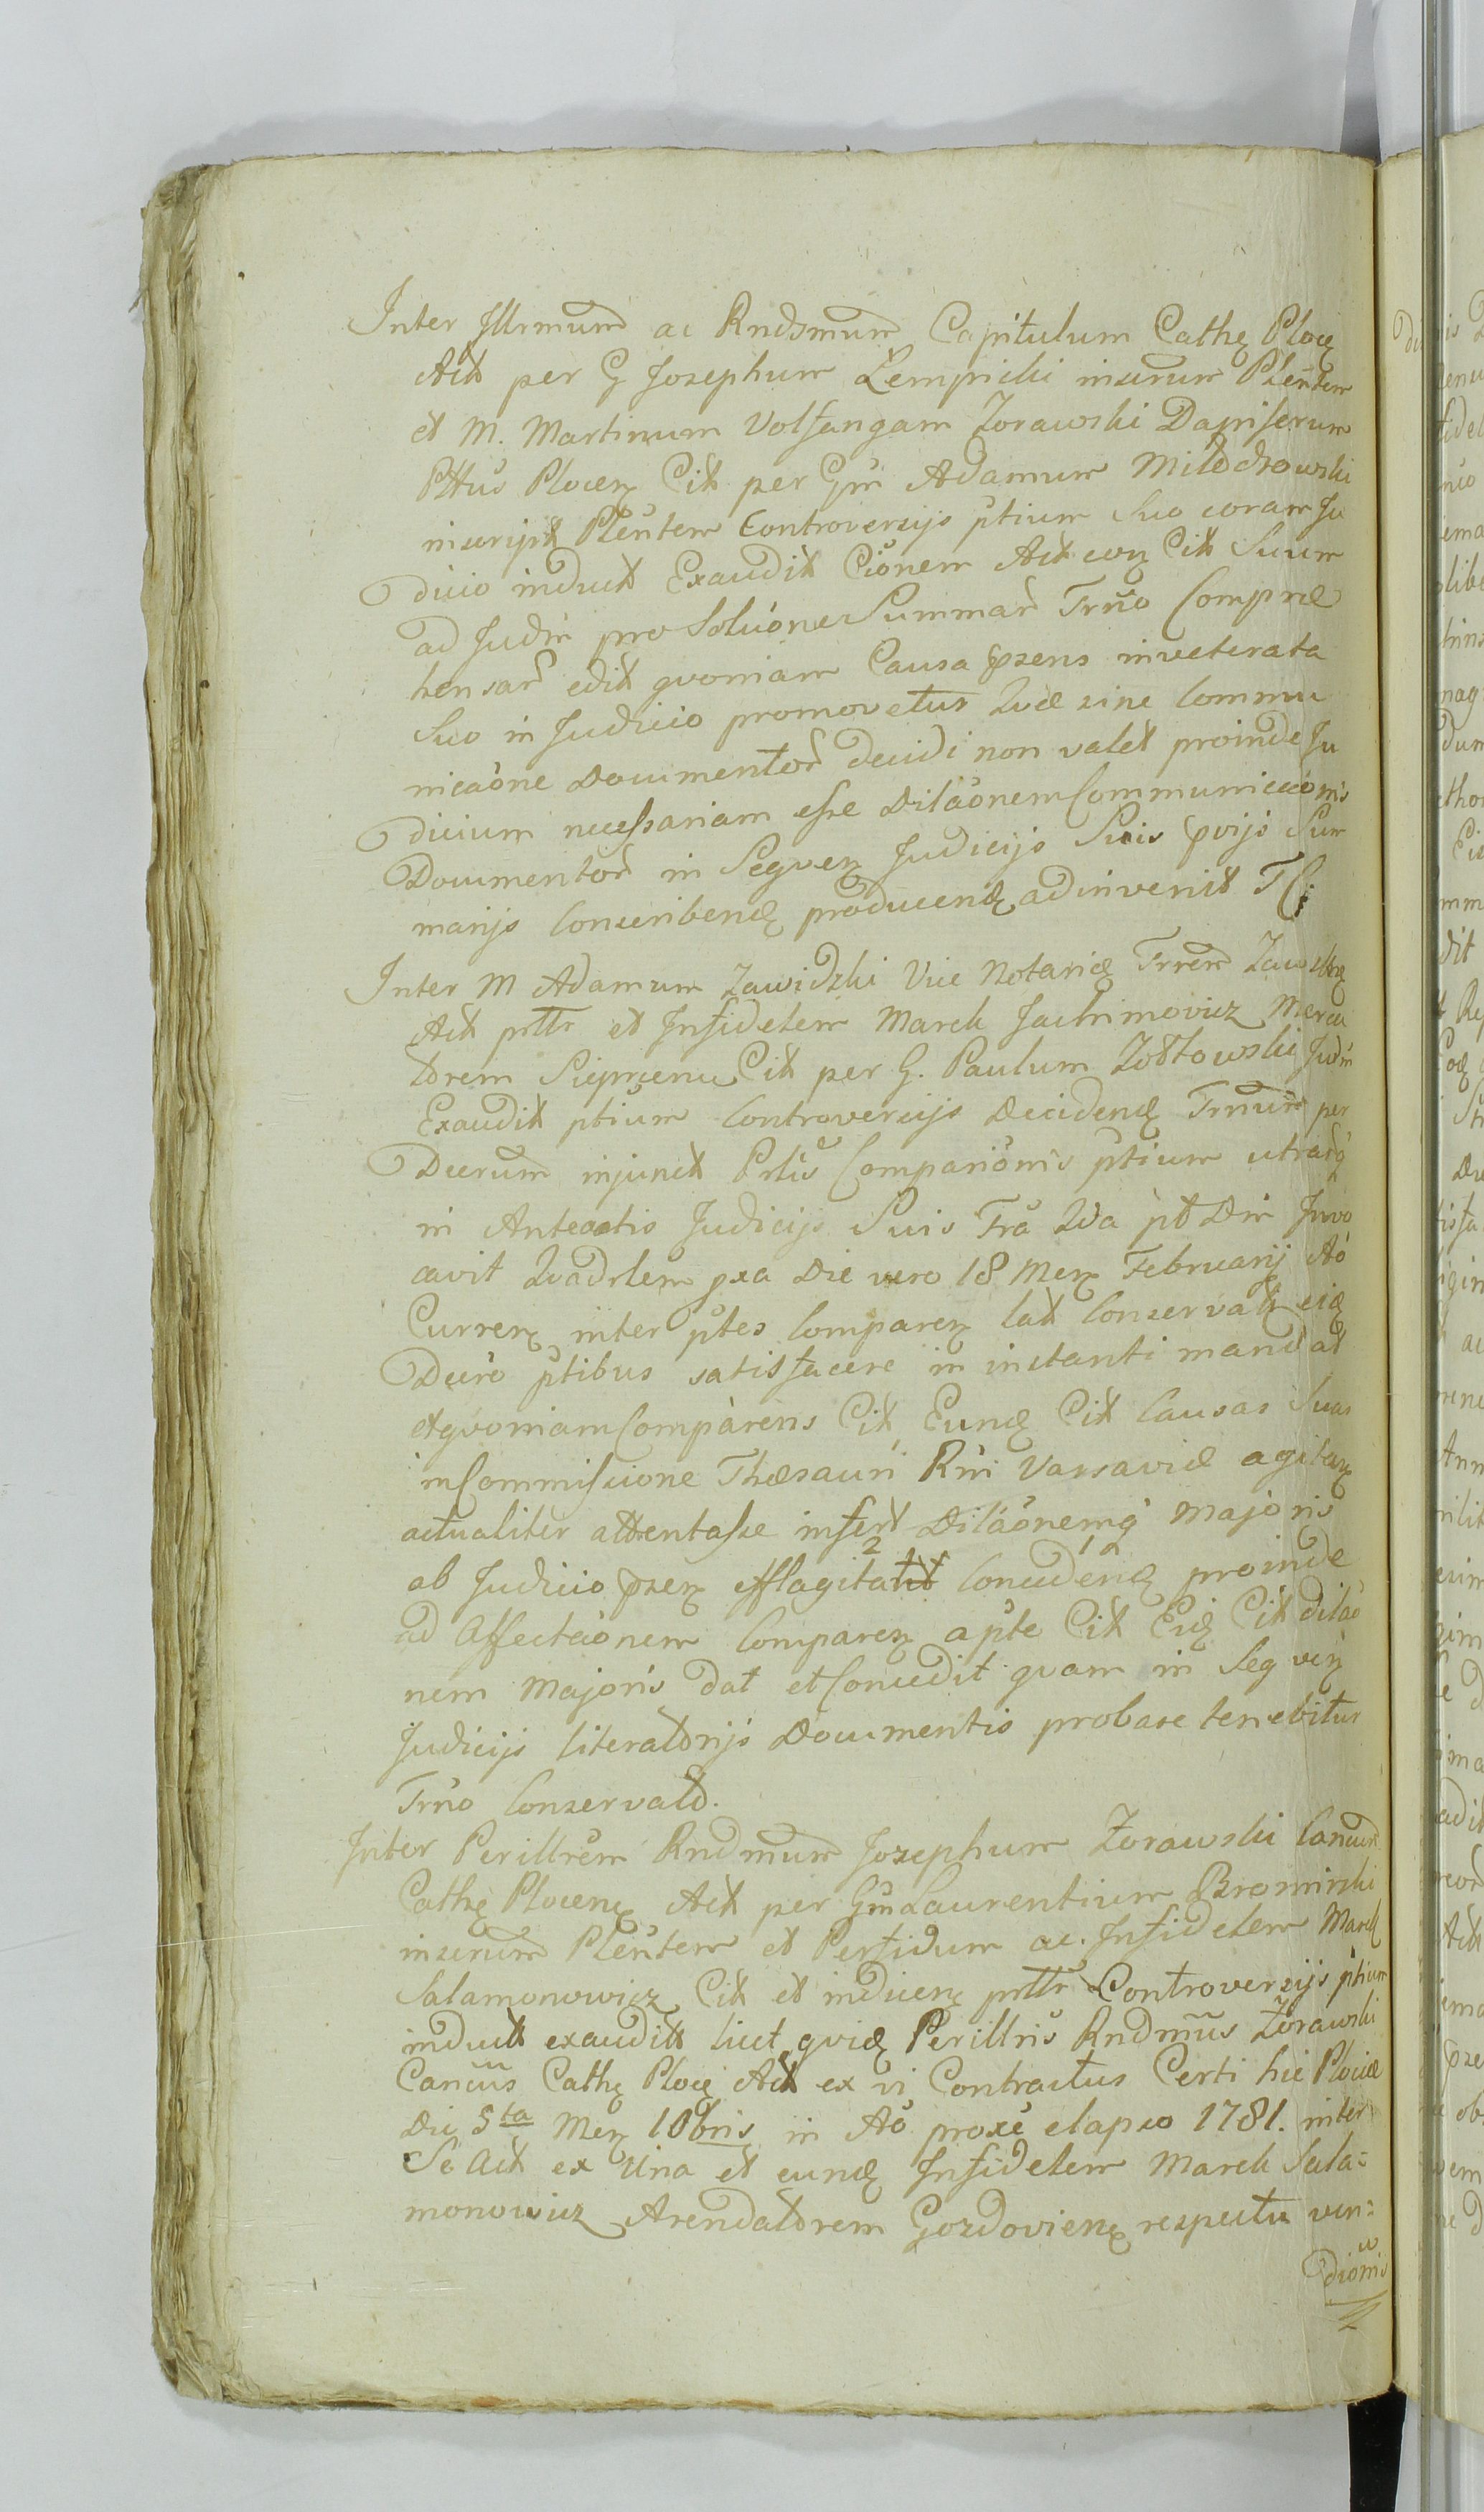 Inter Illrmum ac Rndsmum Capitulum Cathę Ploc̨
Act per G Josephum Łempicki inserum Pleñtem
et M. Martinum Volfangam Zorawski Dapiferum
Pttus Plocen Cit per Gm Adamum Miłodrowski
inscript Pleñtem Controversijs ptium Suo coram Ju
dicio induct Exaudit Cionem Act eor Cit Suum
ad Judm pro Soluóne Summar Trño Comprae
hensar edit qvoniam Causa pzens inveterata
Suo in Judicio promovetur Qvae sine Commu
nicaóne Documentor decidi non valet proinde Ju
dicium necessariam esse Dilaónem Communicaónis
Documentor in Seqven Judicijs Suis pvijs Sum
marijs Conscribend producend adinvenit T C:
Inter M Adamum Zawidzki Vice Notariū Trrem Zawskr
Act prttr et Infidelem Marek Jachimovicz Merca
torem Sieprcen Cit per G. Paulum Zołtowski Judm
Exaudit ptium Controversijs Decidend Trmum per
Decrum injunct Prtis Comparióni​s ptium utraq
in Anteactis Judicijs Suis Fra 2da pt Dm Invo
cavit Qvadrlem pxa Die vero 18 Men Februarij Aõ
Curren inter ptes Comparen lat Conservat eid
Decro ptibus satisfacere in instanti mandat
et qvoniam Comparens Cit Eund Cit Causas Suas
in Commissione Thesauri Rni Varsaviae agitan
actualiter attentasse infert Dilaónemq Majoris
ab Judicio pzen efflagitat Concedend proinde
ad Affectaónem Comparen a pte Cit Eid Cit dilaó
nem Majoris dat et Concedit qvam in Seqven
Judicijs literatorijs Documentis probare tenebitur
Trño Conservato.
Inter Perillrem Rndmum Josephum Zorawski Cancum
Cathę Plocen Act per Gm Laurentium Bromirski
inserum Pleñtem et Perfidum ac Infidelem Marek
Salamonowicz Cit et indicen prttr Controversijs ptium
induct exaudit licet qvid Perillris Rndmus Zorawski
Cancus Cathę Ploc̨ Act ex vi Contractus Certi hic Plociae
Die 5ta Men 10bris in Aõ proxe elapso 1781. inter
Se Act ex Una et eund Infidelem Marek Sala=
monowicz Arendatorem Gozdovien respectu ven=
dionis